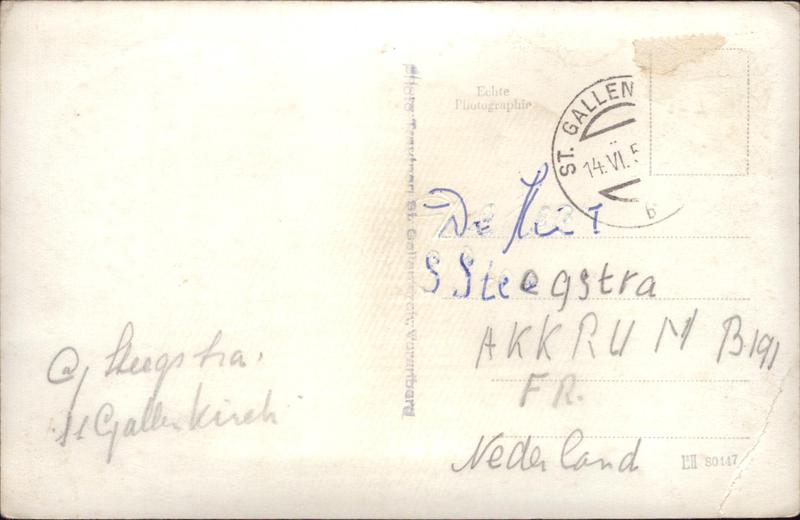 Echte
Photographie
ST. GALLEN
14.VI.5
b
Photo Trautner, St. Gallenkirch, Vorarlberg
De Heer
S Steegstra
AKKRUM B191
FR.
Nederland
Steegstra.
St Gallenkirch
LII 80147